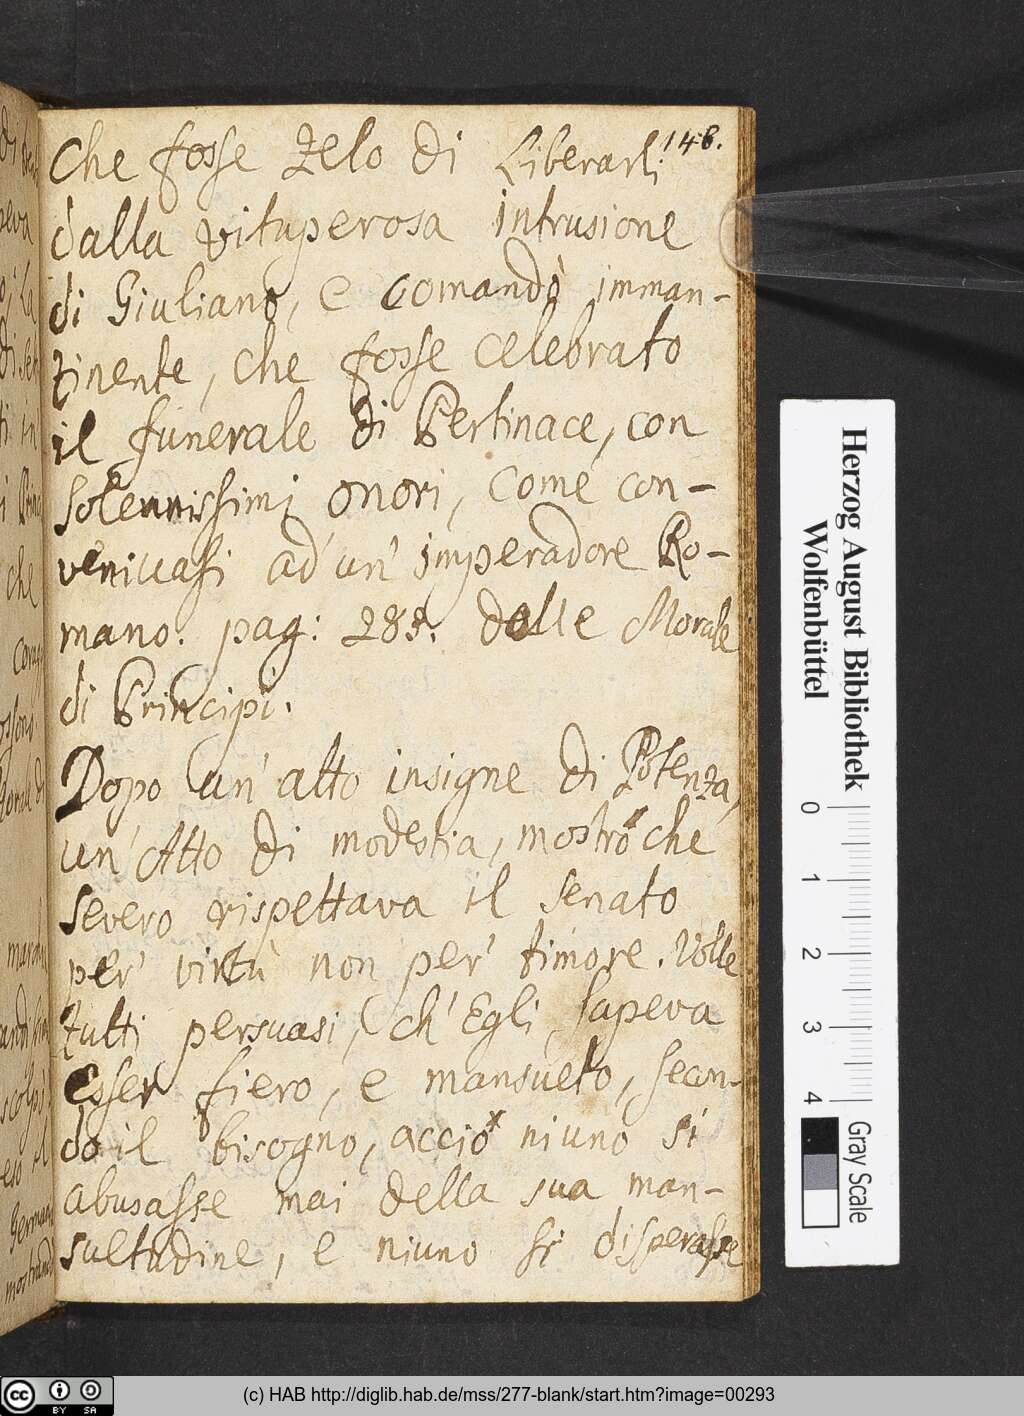 146.
Che fosse zelo di Liberarli
dalla vituperosa intrusione
di Giuliano, e comandò imman-
tinente, che fosse celebrato
il funerale di Pertinace, con
solennissimi onori, come con-
venivasi ad un' imperadore Ro-
mano. pag: 285. delle Morale
di Principi.
Dopo un' atto insigne di Potenza,
un' Atto di modestia, mostrò che
Severo rispettava il senato
per' virtù non per' timore. Volle
tutti persuasi, ch' Egli sapeva
Esser fiero, e mansueto, secon-
do il bisogno, acciò niuno si
abusasse mai della sua man-
suetudine, e niuno si disperasse
Herzog August Bibliothek
Wolfenbüttel
0 1 2 3 4
Gray Scale
cc BY SA
(c) HAB http://diglib.hab.de/mss/277-blank/start.htm?image=00293